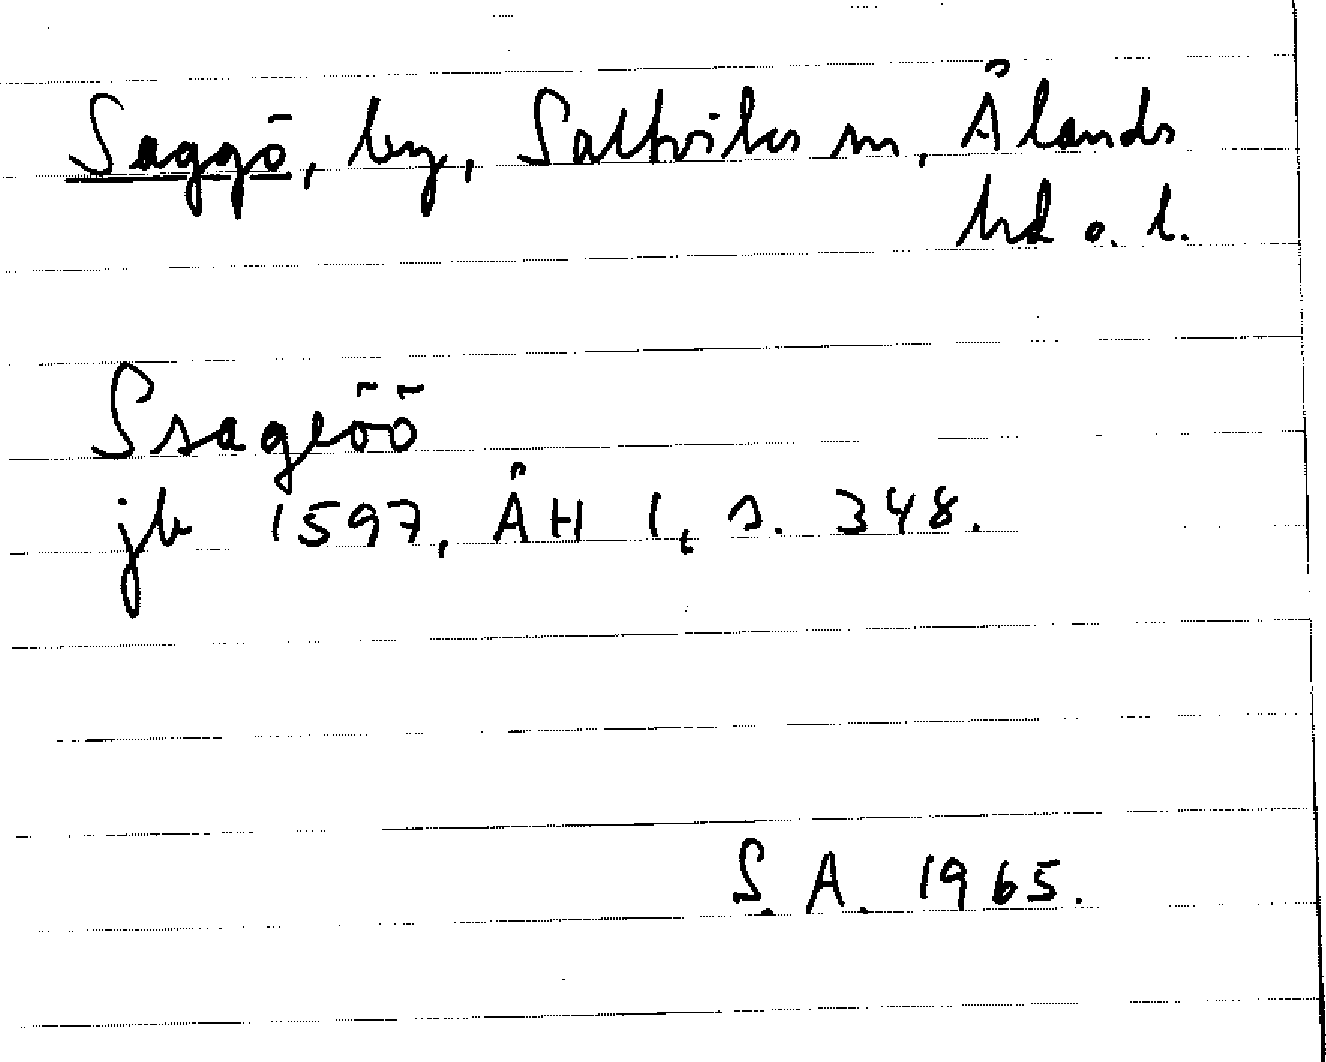 Saggö, by, Saltviks sn, Ålands
hd o. l.
Ssageöö
jb 1597, ÅH I, s. 348.
S. A. 1965.